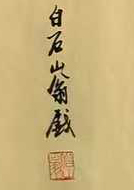 白石山翁戲